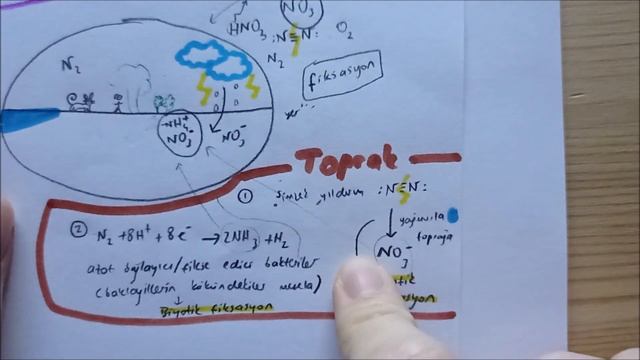 NO3
HNO3 :N≡N: O2
N2
N2
fiksasyon
NH4+
NO3- NO3-
Toprak
① Şimşek yıldırım :N≡N:
yağmurla
toprağa
NO3-
② N2 + 8H+ + 8e- → 2NH3 + H2
azot bağlayıcı/fikse edici bakteriler
(baklagillerin kökündekiler mesela)
Biyotik fiksasyon